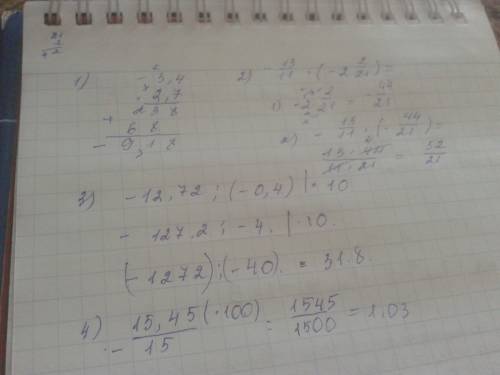 21
2
42
1)
- 3,4
× 2,7
238
+
68
- 9,18
2) - 13/11 · (-2 2/21) =
1) -2 2/21 = - 44/21
2) - 13/11 · (- 44/21) =
13 · 44 / 11 · 21 = 52/21
3) -12,72 : (-0,4) | · 10
- 127,2 : -4. | · 10.
(-1272) : (-40). = 31.8.
4) - 15,45 / 15 (·100) = 1545/1500 = 1,03